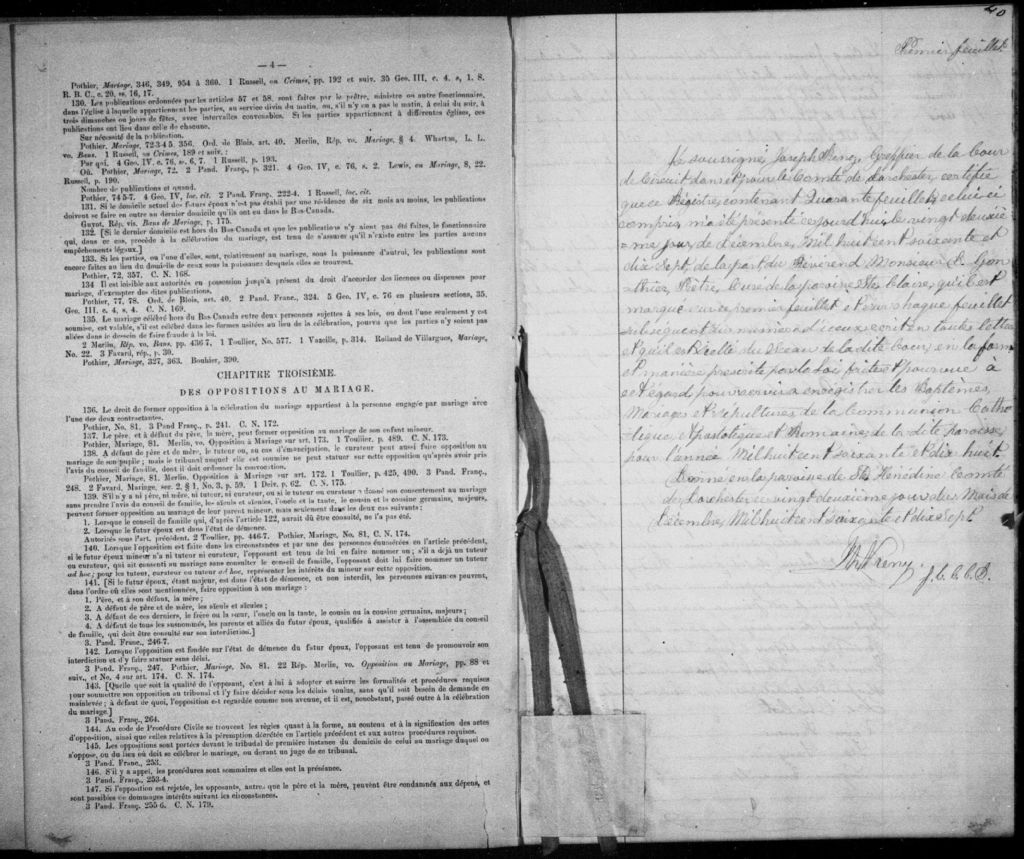 — 4 —
Pothier, Mariage, 346, 349, 954 à 360. 1 Russell, on Crimes, pp. 192 et suiv. 35 Geo. III, c. 4. s, 1. 8.
R. B. C., c. 20, ss. 16, 17.
130. Les publications ordonnées par les articles 57 et 58, sont faites par le prêtre, ministre ou autre fonctionnaire,
dans l'église à laquelle appartiennent les parties, au service divin du matin, ou, s'il n'y en a pas le matin, à celui du soir, à
trois dimanches ou jours de fêtes, avec intervalles convenables. Si les parties appartiennent à différentes églises, ces
publications ont lieu dans celle de chacune.
Sur nécessité de la publication.
Pothier, Mariage, 72-3-4 5. 356. Ord. de Blois, art. 40. Merlin, Rép. vo. Mariage, § 4. Wharton, L. L.
vo. Bans. 1 Russell, on Crimes, 189 et suiv. :
Par qui. 4 Geo. IV, c. 76, ss. 6, 7. 1 Russell, p. 193.
Où. Pothier, Mariage, 72. 2 Pand. Franç., p. 321. 4 Geo. IV, c. 76, s. 2. Lewis, on Mariage, 8, 22.
Russell, p. 190.
Nombre de publications et quand.
Pothier, 74 5-7. 4 Geo. IV, loc. cit. 2 Pand. Franç. 222-4. 1 Russell, loc. cit.
131. Si le domicile actuel des futurs époux n'est pas établi par une résidence de six mois au moins, les publications
doivent se faire en outre au dernier domicile qu'ils ont eu dans le Bas-Canada.
Guyot, Rép. vis. Bans de Mariage, p. 175.
132. [Si le dernier domicile est hors du Bas-Canada et que les publications n'y aient pas été faites, le fonctionnaire
qui, dans ce cas, procède à la célébration du mariage, est tenu de s'assurer qu'il n'existe entre les parties aucuns
empêchements légaux.]
133. Si les parties, ou l'une d'elles, sont, relativement au mariage, sous la puissance d'autrui, les publications sont
encore faites au lieu du domicile de ceux sous la puissance desquels elles se trouvent.
Pothier, 72, 357. C. N. 168.
134 Il est loisible aux autorités en possession jusqu'à présent du droit d'accorder des licences ou dispenses pour
mariage, d'exempter des dites publications.
Pothier, 77, 78. Ord. de Blois, art. 40, 2 Pand. Franç., 324. 5 Geo. IV, c. 76 en plusieurs sections, 35,
Geo. III, c. 4, s, 4. C. N. 169.
135. Le mariage célébré hors du Bas Canada entre deux personnes sujettes à ses lois, ou dont l'une seulement y est
soumise, est valable, s'il est célébré dans les formes usitées au lieu de la célébration, pourvu que les parties n'y soient pas
allées dans le dessein de faire fraude à la loi.
2 Merlin, Rép. vo. Bans, pp. 436 7, 1 Toullier, No. 577. 1 Vazeille, p. 314. Rolland de Villargues, Mariage,
No. 22. 3 Favard, rép., p. 30.
Pothier, Mariage, 327, 363. Bouhier, 390.
CHAPITRE TROISIÈME.
DES OPPOSITIONS AU MARIAGE.
136. Le droit de former opposition à la célébration du mariage appartient à la personne engagée par mariage avec
l'une des deux contractantes.
Pothier, No. 81. 3 Pand Franç., p. 241. C. N. 172.
137. Le père, et à défaut du père, la mère, peut former opposition au mariage de son enfant mineur.
Pothier, Mariage, 81. Merlin, vo. Opposition à Mariage sur art. 173. 1 Toullier, p. 489. C. N. 173.
138. A défaut de père et de mère, le tuteur ou, en cas d'émancipation, le curateur peut aussi faire opposition au
mariage de son pupile ; mais le tribunal auquel elle est soumise ne peut statuer sur cette opposition qu'après avoir pris
l'avis du conseil de famille, dont il doit ordonner la convocation.
Pothier, Mariage, 81. Merlin, Opposition à Mariage sur art. 172. 1 Toullier, p. 425, 490. 3 Pand. Franç.,
248. 2 Favard, Mariage, sec. 2. § 1, No. 3, p. 59. 1 Deir, p. 62. C. N. 175.
139. S'il n'y a ni père, ni mère, ni tuteur, ni curateur, ou si le tuteur ou curateur a donné son consentement au mariage
sans prendre l'avis du conseil de famille, les aïeuls et aïeules, l'oncle et la tante, le cousin et la cousine germains, majeurs,
peuvent former opposition au mariage de leur parent mineur, mais seulement dans les deux cas suivants :
1. Lorsque le conseil de famille qui, d'après l'article 122, aurait dû être consulté, ne l'a pas été.
2. Lorsque le futur époux est dans l'état de démence.
Autorités sous l'art. précédent. 2 Toullier, pp. 446-7. Pothier, Mariage, No. 81, C. N. 174.
140. Lorsque l'opposition est faite dans les circonstances et par une des personnes énumérées en l'article précédent,
si le futur époux mineur n'a ni tuteur ni curateur, l'opposant est tenu de lui en faire nommer un ; s'il a déjà un tuteur
ou curateur, qui ait consenti au mariage sans consulter le conseil de famille, l'opposant doit lui faire nommer un tuteur
ad hoc ; pour les tuteur, curateur ou tuteur ad hoc, représenter les intérêts du mineur sur cette opposition.
141. [Si le futur époux, étant majeur, est dans l'état de démence, et non interdit, les personnes suivantes peuvent,
dans l'ordre où elles sont mentionnées, faire opposition à son mariage :
1. Père, et à son défaut, la mère ;
2. A défaut de père et de mère, les aïeuls et aïeules ;
3. A défaut de ces derniers, le frère ou la sœur, l'oncle ou la tante, le cousin ou la cousine germains, majeurs ;
4. A défaut de tous les susnommés, les parents et alliés du futur époux, qualifiés à assister à l'assemblée du conseil
de famille, qui doit être consulté sur son interdiction.]
3. Pand. Franc., 246-7.
142. Lorsque l'opposition est fondée sur l'état de démence du futur époux, l'opposant est tenu de promouvoir son
interdiction et d'y faire statuer sans délai.
3 Pand. Franç., 247. Pothier, Mariage, No. 81. 22 Rép. Merlin, vo. Opposition au Mariage, pp. 88 et
suiv., et No. 4 sur art. 174. C. N. 174.
143. [Quelle que soit la qualité de l'opposant, c'est à lui à adopter et suivre les formalités et procédures requises
pour soumettre son opposition au tribunal et l'y faire décider sous les délais voulus, sans qu'il soit besoin de demande en
mainlevée ; à défaut de quoi, l'opposition est regardée comme non avenue, et il est, nonobstant, passé outre à la célébration
du mariage.]
3 Pand. Franç., 264.
144. Au code de Procédure Civile se trouvent les règles quant à la forme, au contenu et à la signification des actes
d'opposition, ainsi que celles relatives à la péremption décrétée en l'article précédent et aux autres procédures requises.
145. Les oppositions sont portées devant le tribunal de première instance du domicile de celui au mariage duquel on
s'oppose, ou du lieu où doit se célébrer le mariage, ou devant un juge de ce tribunal.
3 Pand. Franc., 253.
146. S'il y a appel, les procédures sont sommaires et elles ont la préséance.
3 Pand. Franç., 253-4.
147. Si l'opposition est rejetée, les opposants, autres que le père et la mère, peuvent être condamnés aux dépens, et
sont passibles de dommages intérêts suivant les circonstances.
3 Pand. Franç. 255 6. C. N. 179.
40
Premier feuillet
Je soussigné, Joseph Greffier de la Cour
de Circuit dans et pour le Comté de Dorchester certifie
que ce Registre, contenant Quarante feuillets celui-ci
compris, m'a été présenté ce jourd'hui, le vingt deuxiè
me jour de décembre, Mil huit cent soixante et
dix sept, de la part du Révérend Monsieur
Prêtre, Curé de la paroisse Ste Claire, qu'il est
marqué sur ce premier feuillet et sur chaque feuillet
subséquent du numéro d'iceux écrit en toutes lettres
et qu'il est scellé du Sceau de la dite Cour, en la forme
et manière prescrite par la Loi faite et pourvue à
cet égard, pour servir à enregistrer les Baptêmes,
Mariages et Sépultures, de la Communion Catho
lique, Apostolique et Romaine, de la dite paroisse,
pour l'année Mil huit cent soixante et dix huit.
Donné en la paroisse de Ste Hénédine Comté
de Dorchester ce vingt deuxième jour du Mois de
Décembre, Mil huit cent soixante et dix Sept
G. C. C. D.